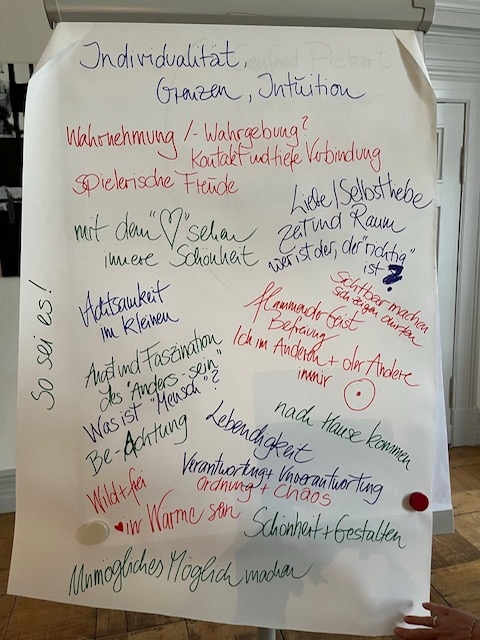 Individualität,
Grenzen, Intuition
Wahrnehmung /- Wahrgebung?
Kontakt und tiefe Verbindung
spielerische Freude
Liebe/Selbstliebe
mit dem "♡" sehen
innere Schönheit
Zeit und Raum
wer ist der, der "richtig"
ist?
Sichtbar machen
sich zeigen dürfen
Achtsamkeit
im kleinen
flammender Geist
Befreiung
Ich im Anderen + der Andere
in mir
So sei es!
Angst und Faszination
des "Anders-sein"
Was ist "Mensch"?
Be-Achtung
Lebendigkeit
nach Hause kommen
Verantwortung + Unverantwortung
Ordnung + Chaos
Wild + frei
♥ in Wärme sein
Schönheit + Gestalten
Unmögliches Möglich machen